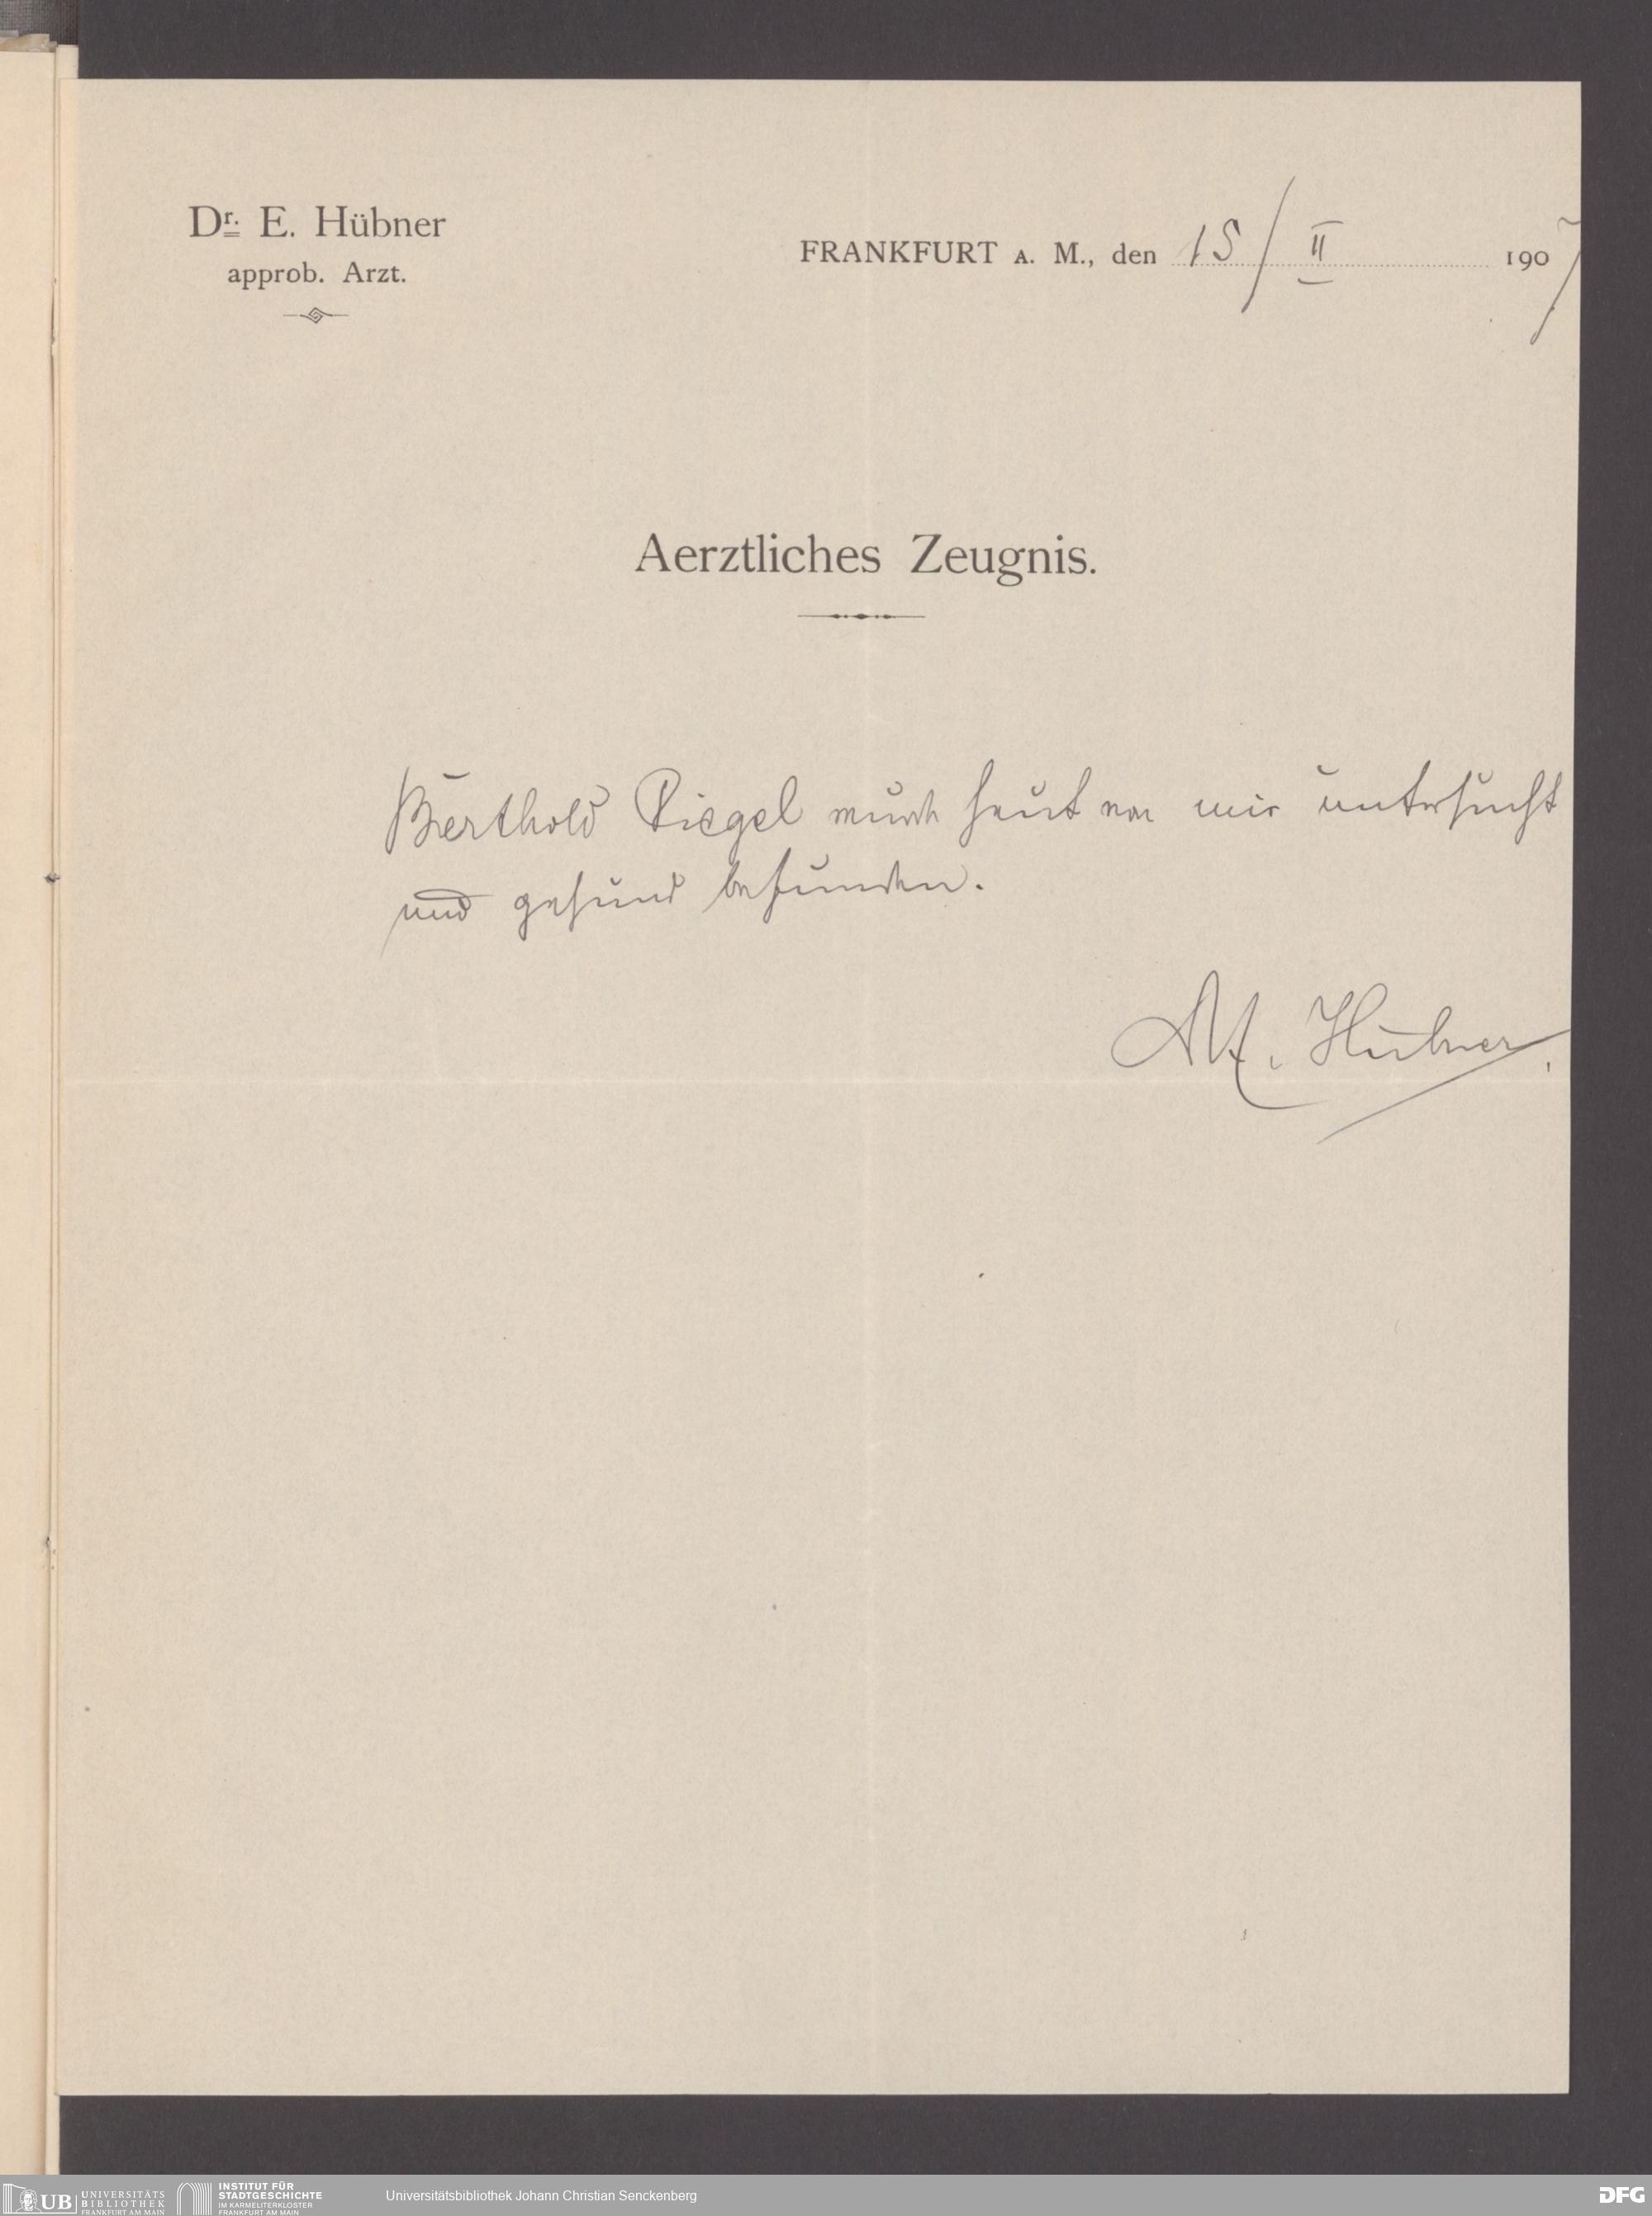 Dr. E. Hübner
approb. Arzt.
FRANKFURT A. M., den 15/II 1907
Aerztliches Zeugnis.
Berthold Riegel wurde heut von mir untersucht
und gesund befunden.
Hübner.
UB
UNIVERSITÄTS
BIBLIOTHEK
FRANKFURT AM MAIN
INSTITUT FÜR
STADTGESCHICHTE
IM KARMELITERKLOSTER
FRANKFURT AM MAIN
Universitätsbibliothek Johann Christian Senckenberg
DFG